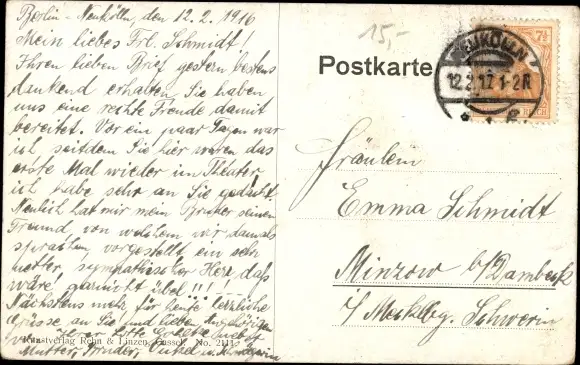 Berlin - Neukölln, den 12.2.1916
Mein liebes Frl. Schmidt!
Ihren lieben Brief gestern bestens
dankend erhalten Sie haben
uns eine rechte Freude damit
bereitet. Vor ein paar Tagen war
ich seitdem Sie hier waren das
erste Mal wieder im Theater
ich habe sehr an Sie gedacht.
Neulich hat mir mein Bruder seinen
Freund, von welchem wir damals
sprachen, vorgestellt ein sehr
netter, sympathischer Herr, das
wäre garnicht übel!!!
Nächstens mehr für heute herzliche
Grüsse an Sie und lieben Angehörigen
von Ihrer Lotte nebst
Mutter, Bruder, Onkel u.
Kunstverlag Rehn & Linzen, Cassel. No. 2113
15,-
Postkarte
NEUKÖLLN
12.2.17.1-2N
7½
Fräulein
Emma Schmidt
Minzow b/Dambeck
i/Mecklbg. Schwerin